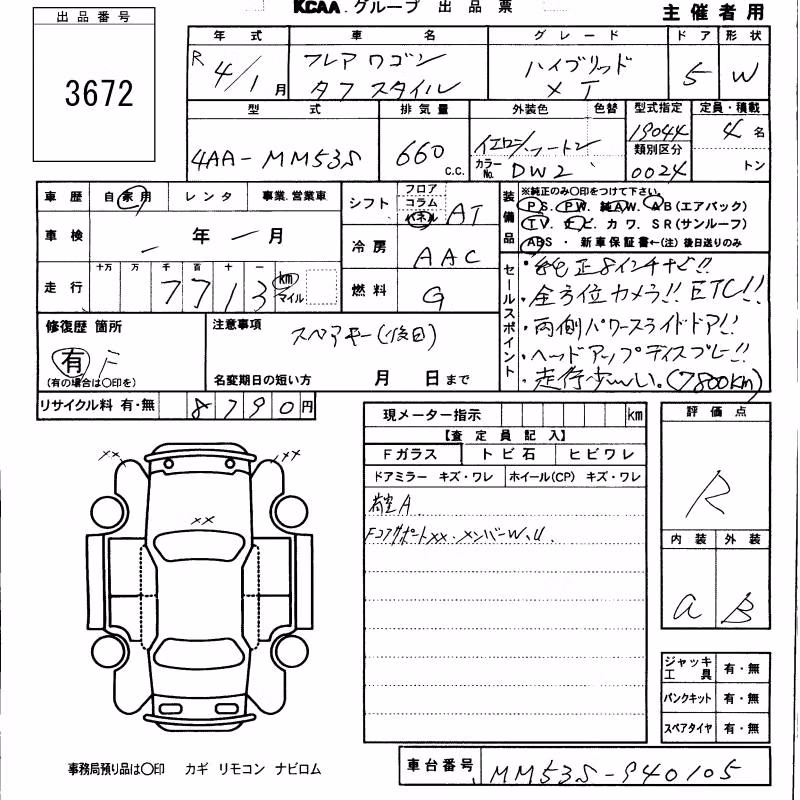 KCAA グループ 出品票
主催者用
出品番号
3672
年式 車名 グレード ドア 形状
R 4/1月 フレアワゴン ハイブリッド 5 W
タフスタイル XT
型式 排気量 外装色 色替 型式指定 定員・積載
4AA-MM53S 660 c.c. カラーNo. DW2 19044 4名
類別区分
0024 トン
車歴 自家用 レンタ 事業.営業車
シフト フロア コラム パネル AT
装備品 ※純正のみ〇印をつけて下さい。
PS. PW. 純AW. AB(エアバック)
TV. ナビ. カワ. SR(サンルーフ)
ABS・新車保証書←(注)後日送りのみ
車検 ー年ー月
冷房 AAC
走行 十万 万 千 百 十 一
7713 km マイル
燃料 G
セールスポイント
・純正8インチナビ!!
・全方位カメラ!! ETC!!
・両側パワースライドドア!!
・ヘッドアップディスプレー!!
・走行少ない。(7800km)
修復歴 箇所
有 F
(有の場合は〇印を)
注意事項
スペアキー(後日)
名変期日の短い方 月 日まで
リサイクル料 有・無 8790円
現メーター指示 km
【査定員記入】
Fガラス トビ石 ヒビワレ
ドアミラー キズ・ワレ ホイール(CP) キズ・ワレ
荷室A
Fコアサポートxx・メンバーW、U
評価点
R
内装 外装
a B
xx xx
xx
ジャッキ工具 有・無
パンクキット 有・無
スペアタイヤ 有・無
事務局預り品は〇印 カギ リモコン ナビロム
車台番号 MM53S-940105